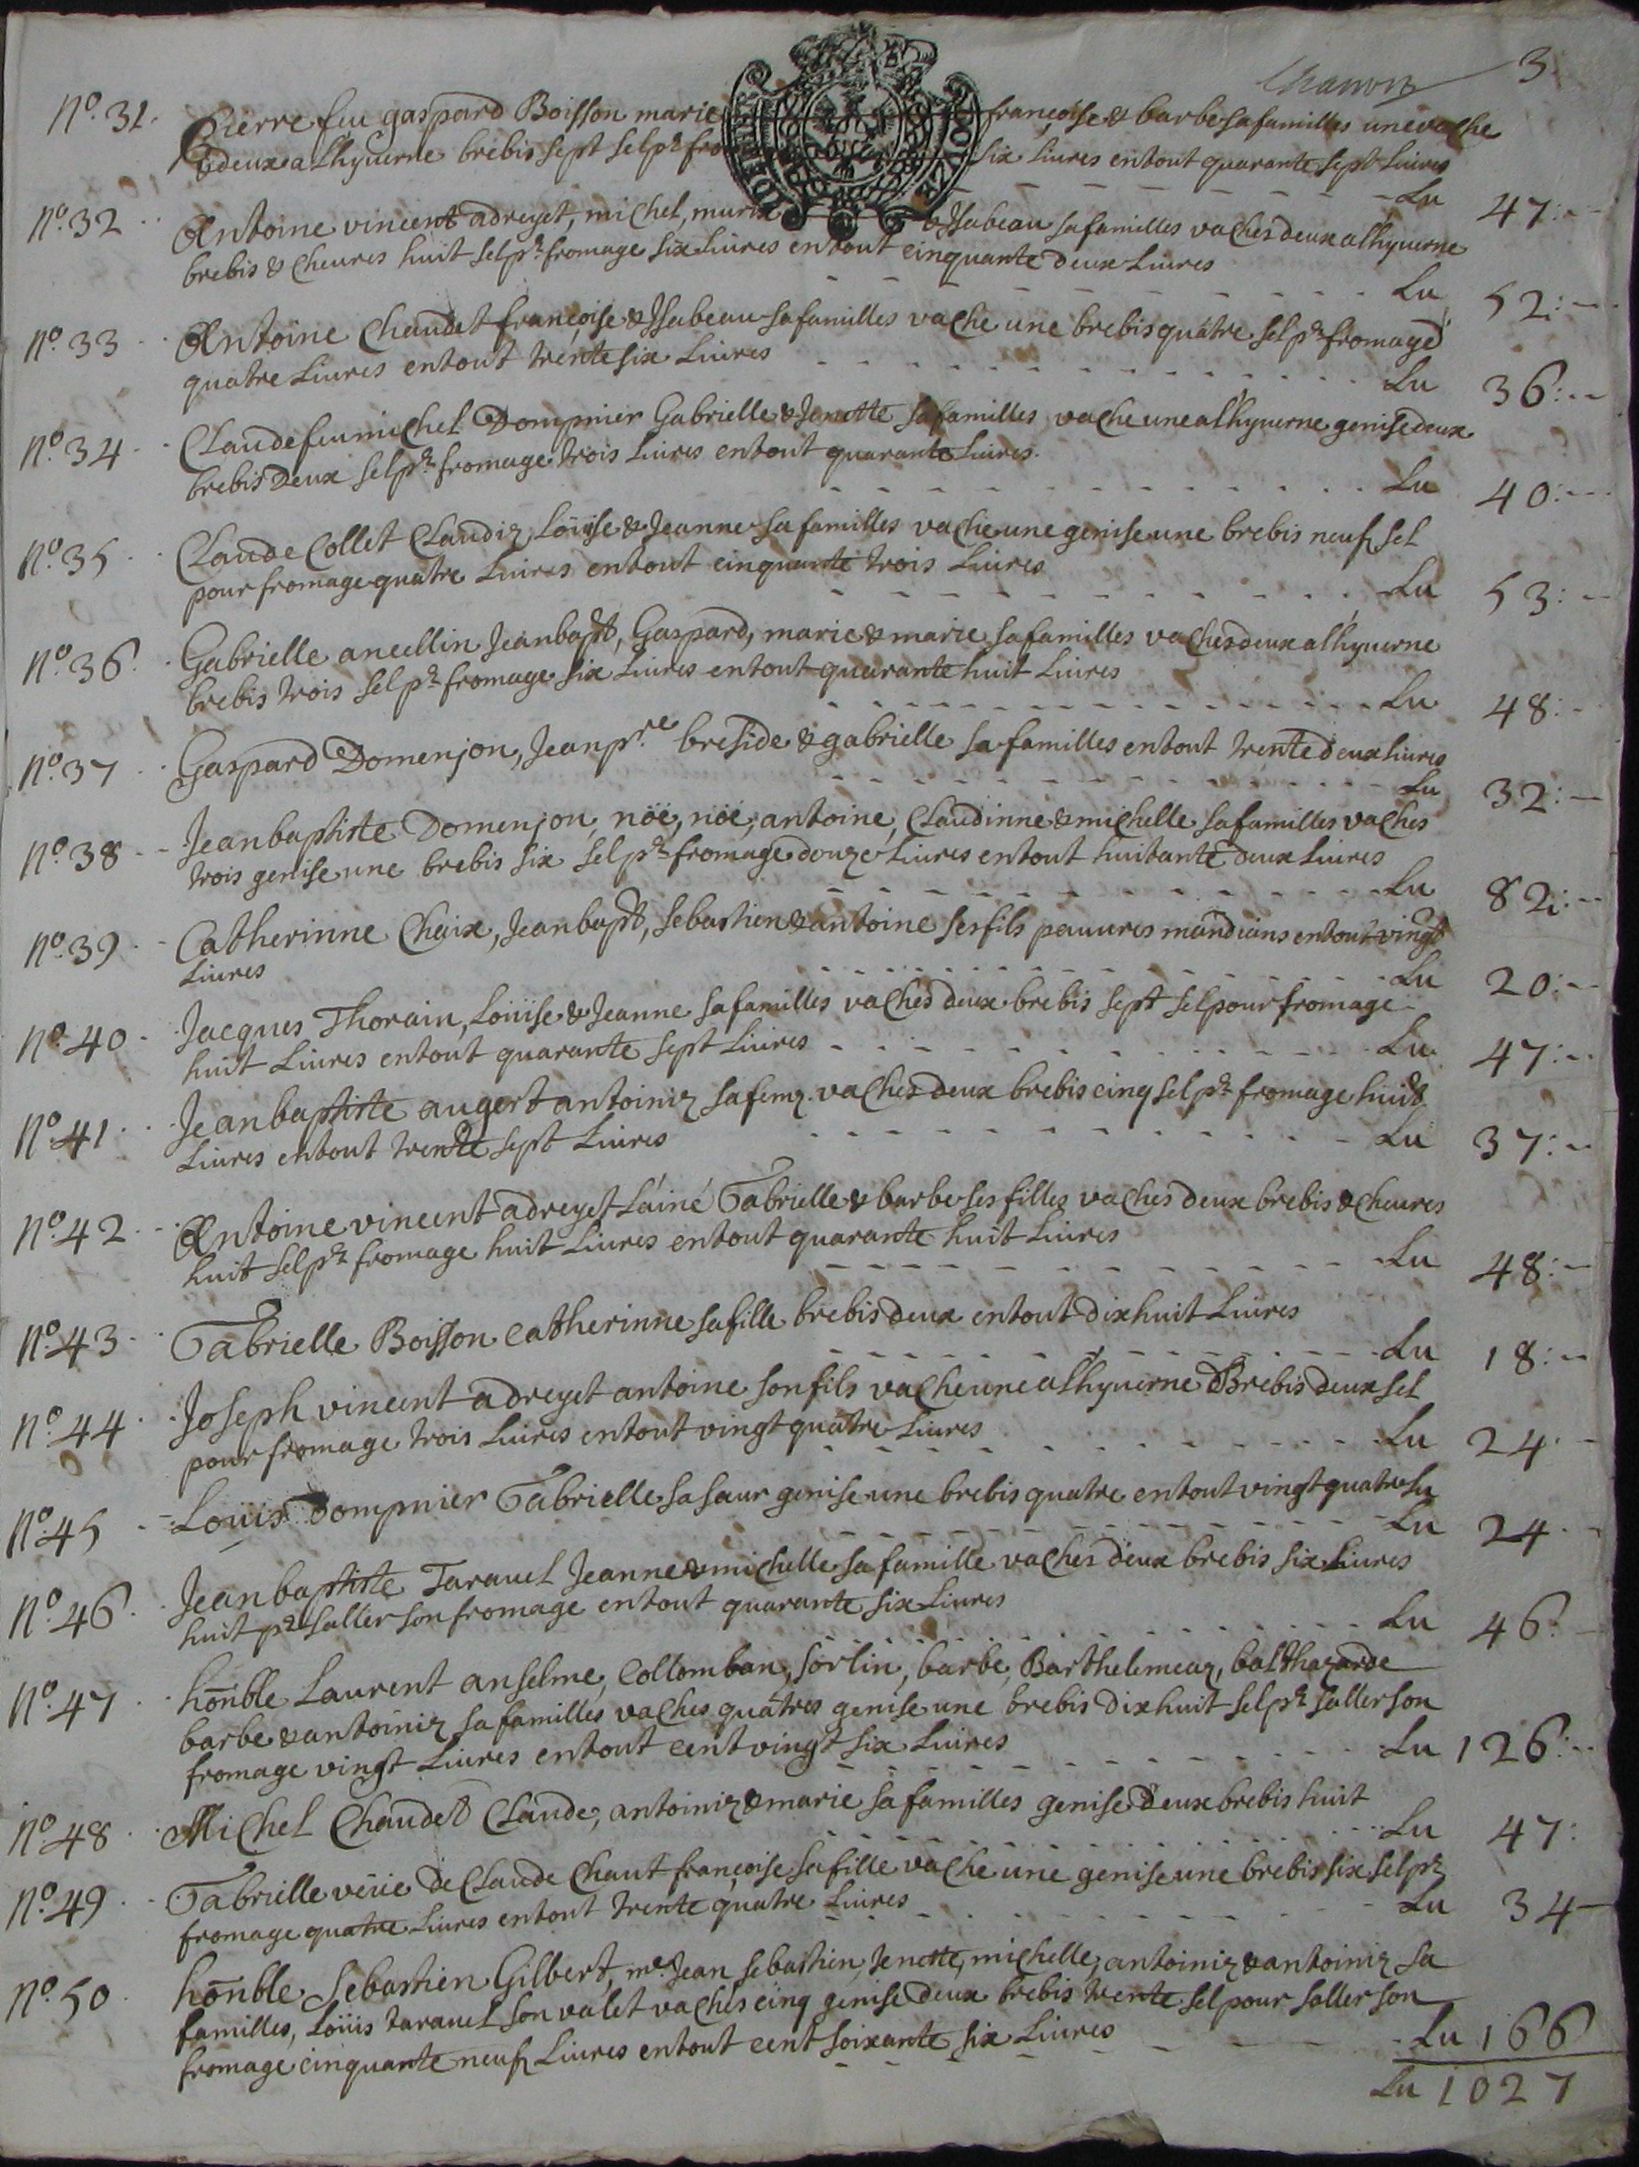 3
N.º 31. Pierre feu gaspard Boisson marie françoise & barbe sa familles une vache
& deux a lhyuerne brebis sept sel pr fro six liures en tout quarante sept liures
Lu 47:--
N.º 32 Antoine vincent adreyet, michel, murix & Isabeau sa familles vaches deux a lhyuerne
brebis & cheures huit sel pr fromage six liures en tout cinquante deux Liures
Lu 52:--
N.º 33 Antoine Chaudet françoise & Isabeau sa familles vache une brebis quatre sel pr fromage
quatre Liures en tout trente six Liures
Lu 36:--
N.º 34 Claude feu michel Dompnier Gabrielle & Jenotte sa familles vache une a lhyuerne genise deux
brebis Deux sel pr fromage trois Liures en tout quarante Liures.
Lu 40:--
N.º 35 Claude Collet Claudiz Loüise & Jeanne sa familles vache une genise une brebis neuf sel
pour fromage quatre Liures en tout cinquante trois Liures
Lu 53:--
N.º 36. Gabrielle ancellin Jean bapt, Gaspard, marie & marie sa familles vaches deux a lhyuerne
brebis trois sel pr fromage six Liures en tout quarante huit Liures
Lu 48:--
N.º 37 Gaspard Domenjon, Jean prre breside & gabrielle sa familles en tout trente deux liures
Lu 32:--
N.º 38 Jean baptiste Domenjon, nöe, nöe, antoine, Claudinne & michelle sa familles vaches
trois genise une brebis six sel pr fromage douze Liures en tout huitante deux Liures
Lu 82:--
N.º 39 Catherinne Chaix, Jean bapt, sebastien & antoine ses fils pauures mandians en tout vingt
Liures
Lu 20:--
N.º 40 Jacques Thorain, Loüise & Jeanne sa familles vaches deux brebis sept sel pour fromage
huit Liures en tout quarante sept Liures
Lu 47:--
N.º 41 Jean baptiste augert antoiniz sa femz vaches deux brebis cinq sel pr fromage huit
Liures en tout trente sept Liures
Lu 37:--
N.º 42 Antoine vincent adreyet Lainé Gabrielle & barbe ses filles vaches deux brebis & cheures
huit sel pr fromage huit Liures en tout quarante huit Liures
Lu 48:--
N.º 43 Gabrielle Boisson Catherinne sa fille brebis deux en tout dix huit Liures
Lu 18:--
N.º 44 Joseph vincent adreyet antoine son fils vache une a lhyuerne Brebis deux sel
pour fromage trois Liures en tout vingt quatre Liures
Lu 24.-
N.º 45 Loüis Dompnier Gabrielle sa sœur genise une brebis quatre en tout vingt quatre Lu
Lu 24.-
N.º 46. Jean baptiste Tarauel Jeanne & michelle sa famille vaches deux brebis six Liures
huit pr saller son fromage en tout quarante six Liures
Lu 46.-
N.º 47 honble Laurent anselme, Collomban, sorlin, barbe, Barthelemeaz, balthazarde
barbe & antoiniz sa familles vaches quatres genise une brebis dix huit sel pr saller son
fromage vingt Liures en tout cent vingt six Liures
Lu 126:--
N.º 48 Michel Chaudet Claude, antoiniz & marie sa familles genise deux brebis huit
Lu 47:
N.º 49 Gabrielle veüe de Claude Chaut françoise sa fille vache une genise une brebis six sel pr
fromage quatre Liures en tout trente quatre Liures
Lu 34-
N.º 50 honble Sebastien Gilbert, me Jean sebastien, Jenotte, michelle, antoiniz & antoiniz sa
familles, Loüis tarauel son valet vaches cinq genise deux brebis trente sel pour saller son
fromage cinquante neuf Liures en tout cent soixante six Liures
Lu 166
Lu 1027